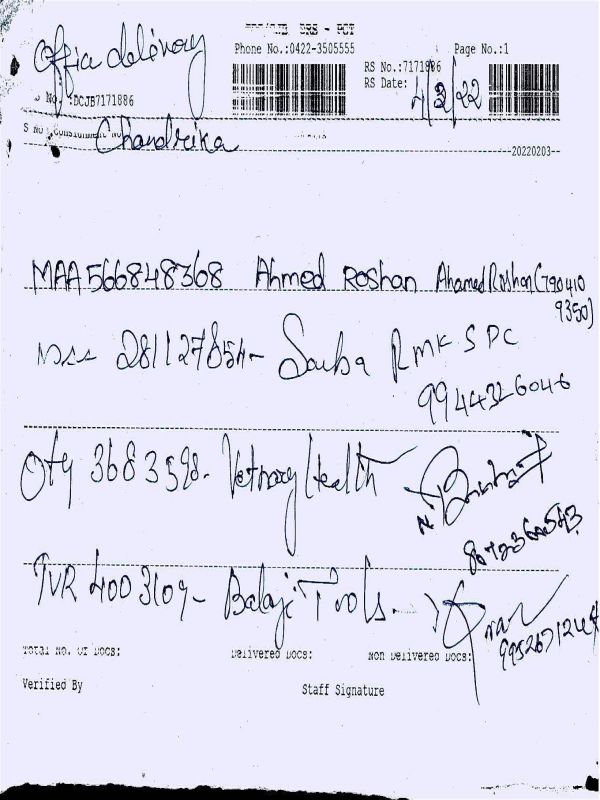 Office delivery
DRS - PCT
Phone No.:0422-3505555
Page No.:1
RS No.:7171886
RS Date:
4/2/22
No. :DCJB7171886
S No. Consignment No
Chandrika
20220203
MAA566848368 Ahmed Roshan Ahamed Roshan (790410
9350)
281127854- RMK SPC
9944326046
Oty 3683598- Vetnary Health
TVR 4003109- Balaji Tools.
Total No. Of Docs: Delivered Docs: Non Delivered Docs:
Verified By Staff Signature